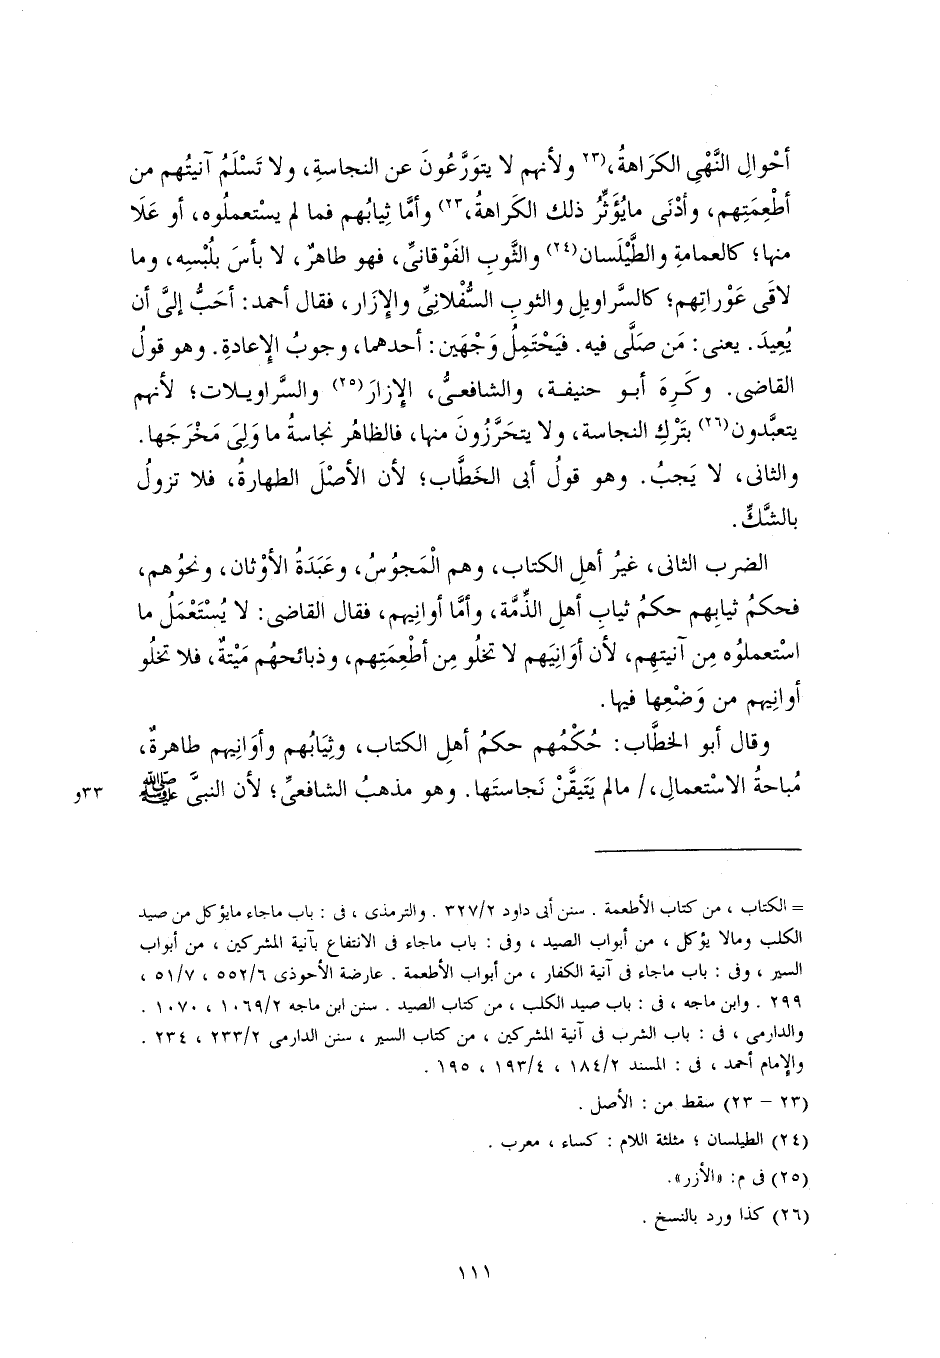 أحْوالِ النَّهْىِ الكَرَاهةُ،(٢٣ ولأنهم لا يتوَرَّعُونَ عن النجاسةِ، ولا تَسْلَمُ آنيتُهم من
أطْعِمَتِهم، وأدْنَى مايُؤَثِّرُ ذلك الكَراهةُ،٢٣) وأمَّا ثِيابُهم فما لم يسْتعملُوه، أو عَلَا
منها؛ كالعمامةِ والطَّيْلَسان(٢٤) والثَّوبِ الفَوْقانىِّ، فهو طاهرٌ، لا بأسَ بلُبْسِه، وما
لاقَى عَوْراتِهم؛ كالسَّراويلِ والثوبِ السُّفْلانِىِّ والإزَار، فقال أحمد: أحَبُّ إلىَّ أن
يُعِيدَ. يعنى: مَن صلَّى فيه. فيَحْتمِلُ وَجْهَين: أحدهما، وجوبُ الإعادةِ. وهو قولُ
القاضى. وكَرِهَ أبو حنيفة، والشافعىُّ، الإزارَ(٢٥) والسَّراويلات؛ لأنهم
يتعبَّدون(٢٦) بتَرْكِ النجاسة، ولا يتحَرَّزُونَ منها، فالظاهُر نجاسةُ ما وَلِىَ مَخْرَجَها.
والثانى، لا يَجبُ. وهو قولُ أبى الخَطَّاب؛ لأن الأصْلَ الطهارةُ، فلا تزولُ
بالشَّكِّ.
الضرب الثانى، غيرُ أهلِ الكتاب، وهم الْمَجوُسُ، وعَبَدَةُ الأوْثان، ونحوُهم،
فحكمُ ثيابِهم حكمُ ثيابِ أهلِ الذِّمَّة، وأمَّا أوانِيهم، فقال القاضى: لا يُسْتَعْمَلُ ما
اسْتعملُوه مِن آنيتهِم، لأن أوَانِيَهم لا تَخلُو مِن أطْعِمَتِهم، وذبائحهُم مَيْتةٌ، فلا تَخلُو
أوانِيهم من وَضْعِها فيها.
وقال أبو الخطَّاب: حُكْمُهم حكمُ أهلِ الكتاب، وثِيَابُهم وأوَانِيهم طاهرةٌ،
مُباحةُ الاسْتعمالِ،/ مالم يَتَيقَّنْ نَجاستَها. وهو مذهبُ الشافعىِّ؛ لأن النبىَّ ﷺ ٣٣و
= الكتاب ، من كتاب الأطعمة . سنن أبى داود ٣٢٧/٢ . والترمذى ، فى : باب ماجاء مايؤكل من صيد
الكلب ومالا يؤكل ، من أبواب الصيد ، وفى : باب ماجاء فى الانتفاع بآنية المشركين ، من أبواب
السير ، وفى : باب ماجاء فى آنية الكفار ، من أبواب الأطعمة . عارضة الأحوذى ٥٥٢/٦ ، ٥١/٧ ،
٢٩٩ . وابن ماجه ، فى : باب صيد الكلب ، من كتاب الصيد . سنن ابن ماجه ١٠٦٩/٢ ، ١٠٧٠ .
والدارمى ، فى : باب الشرب فى آنية المشركين ، من كتاب السير ، سنن الدارمى ٢٣٣/٢ ، ٢٣٤ .
والإمام أحمد ، فى : المسند ١٨٤/٢ ، ١٩٣/٤ ، ١٩٥ .
(٢٣ – ٢٣) سقط من : الأصل .
(٢٤) الطيلسان ؛ مثلثة اللام : كساء ، معرب .
(٢٥) فى م: «الأزر».
(٢٦) كذا ورد بالنسخ .
١١١